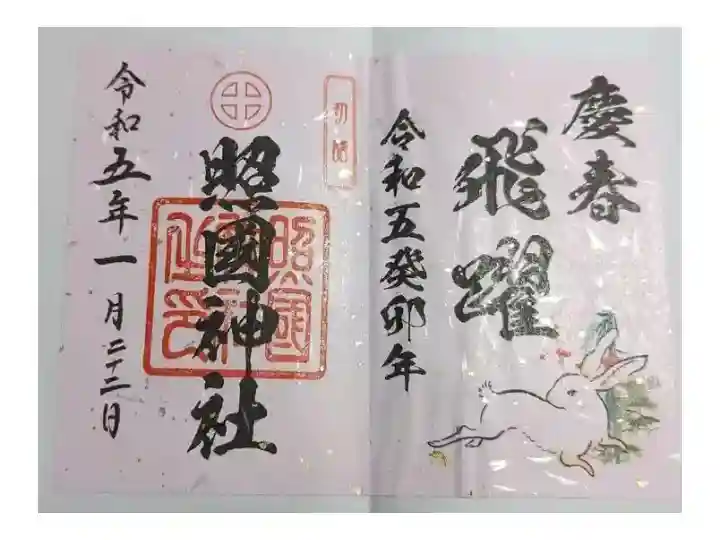 慶春
飛躍
令和五癸卯年
初詣
照國神社
令和五年一月二十二日